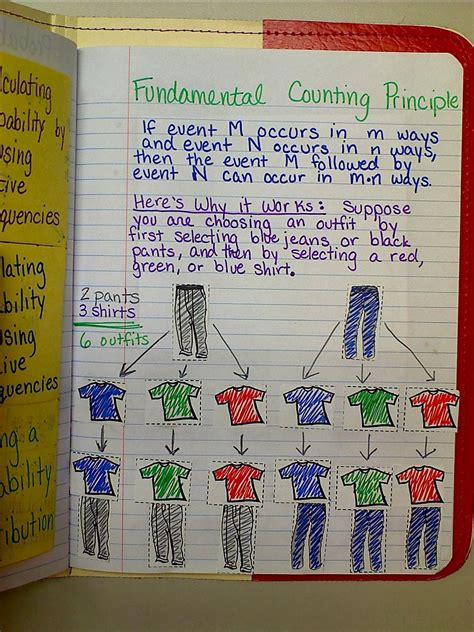 Fundamental Counting Principle
If event M occurs in m ways
and event N occurs in n ways,
then the event M followed by
event N can occur in m·n ways.
Here's Why it Works: Suppose
you are choosing an outfit by
first selecting blue jeans or black
pants, and then by selecting a red,
green, or blue shirt.
2 pants
3 shirts
6 outfits
culating
bability by
using
tive
quencies
lating
ability
using
ive
quencies
ng a
ability
ribution